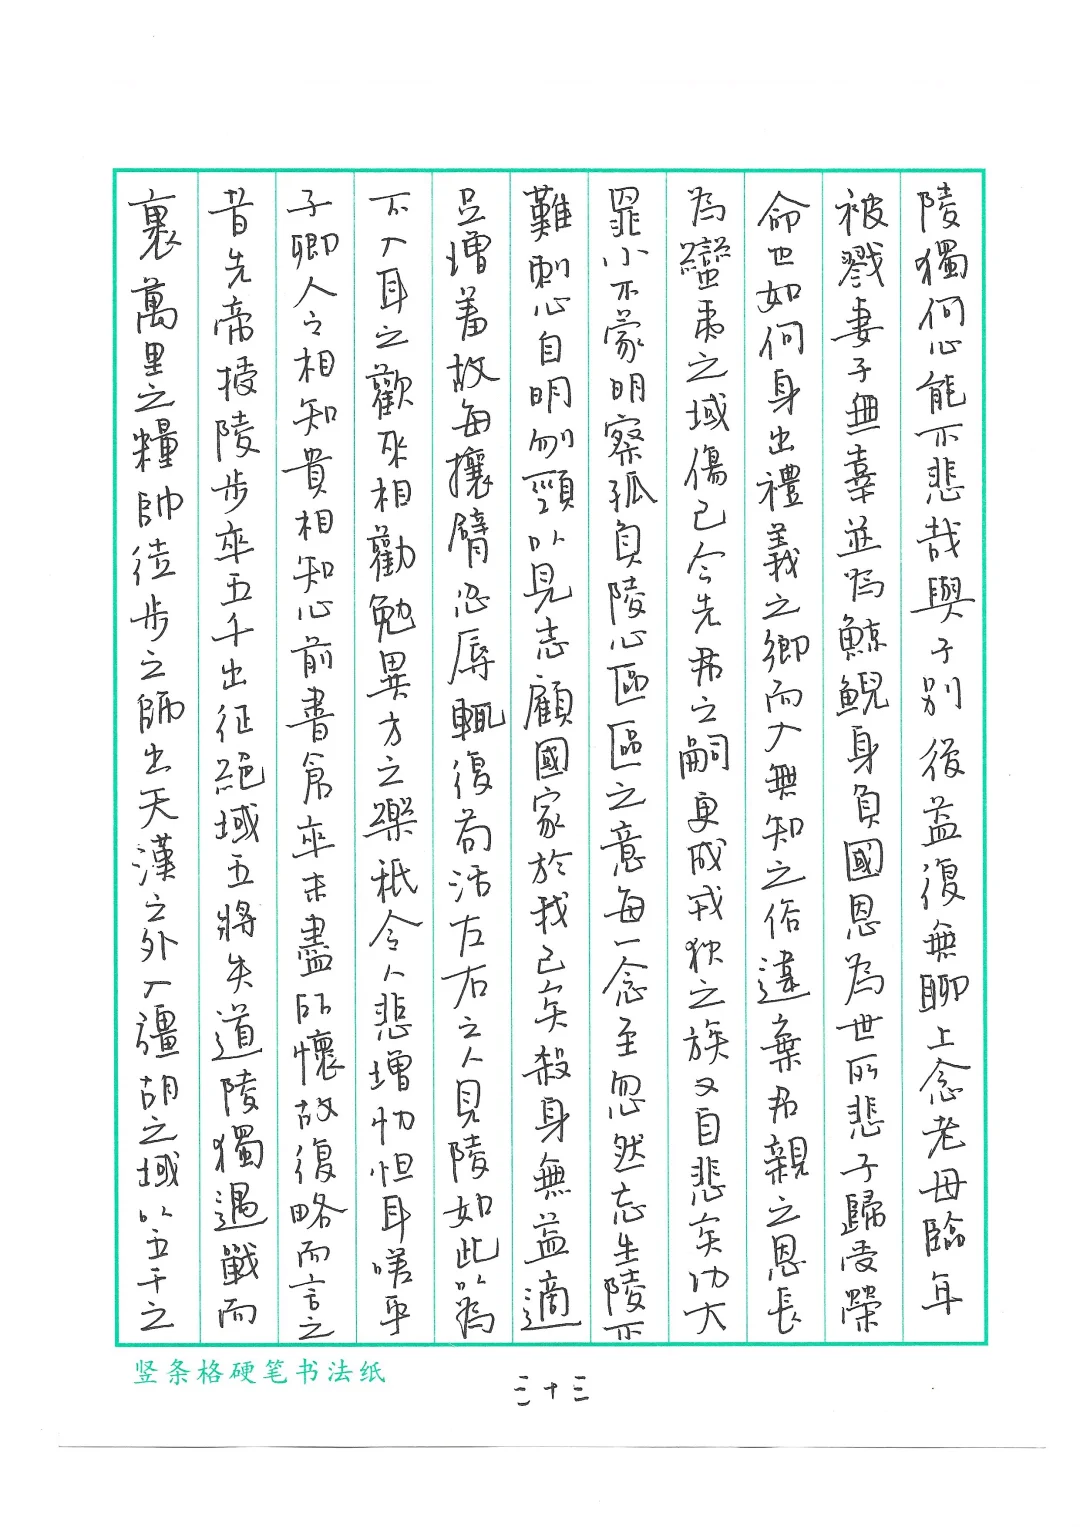 陵獨何心能不悲哉與子別後益復無聊上念老母臨年
被戮妻子無辜並為鯨鯢身負國恩為世所悲子歸受榮
命也如何身出禮義之鄉而入無知之俗違棄君親之恩長
為蠻夷之域傷已令先君之嗣更成戎狄之族又自悲矣功大
罪小不蒙明察孤負陵心區區之意每一念至忽然忘生陵不
難刺心自明刎頸以見志顧國家於我已矣殺身無益適
足增羞故每攘臂忍辱輒復苟活左右之人見陵如此以為
不入耳之歡來相勸勉異方之樂秖令人悲增忉怛耳嗟乎
子卿人之相知貴相知心前書倉卒未盡所懷故復略而言之
昔先帝授陵步卒五千出征絕域五將失道陵獨遇戰而
裹萬里之糧帥徒步之師出天漢之外入彊胡之域以五千之
竖条格硬笔书法纸
三十三